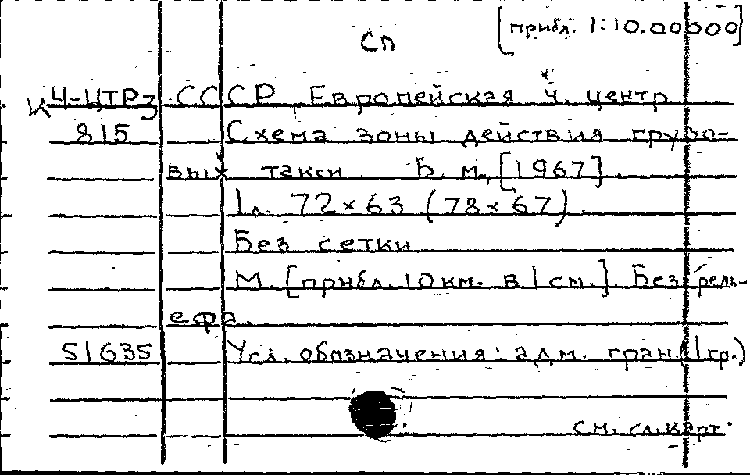 [прибл. 1:10.00000]
Сп
К Ч-ЦТРз СССР. Европейская ч. центр
815 Схема зоны действия грузо-
вых такси Б. м., [1967].
1 л. 72×63 (78×67)
Без сетки
М. [прибл. 10 км. в 1 см.] Без рель-
ефа.
51635 Усл. обозначения: адм. гран (1 гр.)
См. сл. карт.